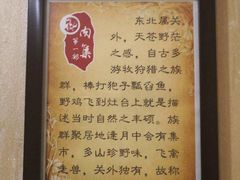 肉集
第一部
东北属关
外，天苍野茫
之感，自古多
游牧狩猎之族
群，棒打狍子瓢舀鱼，
野鸡飞到灶台上就是描
述当时自然之丰硕。族
群聚居地逢月中会有集
市，多山珍野味，飞禽
走兽，关外独有，故称